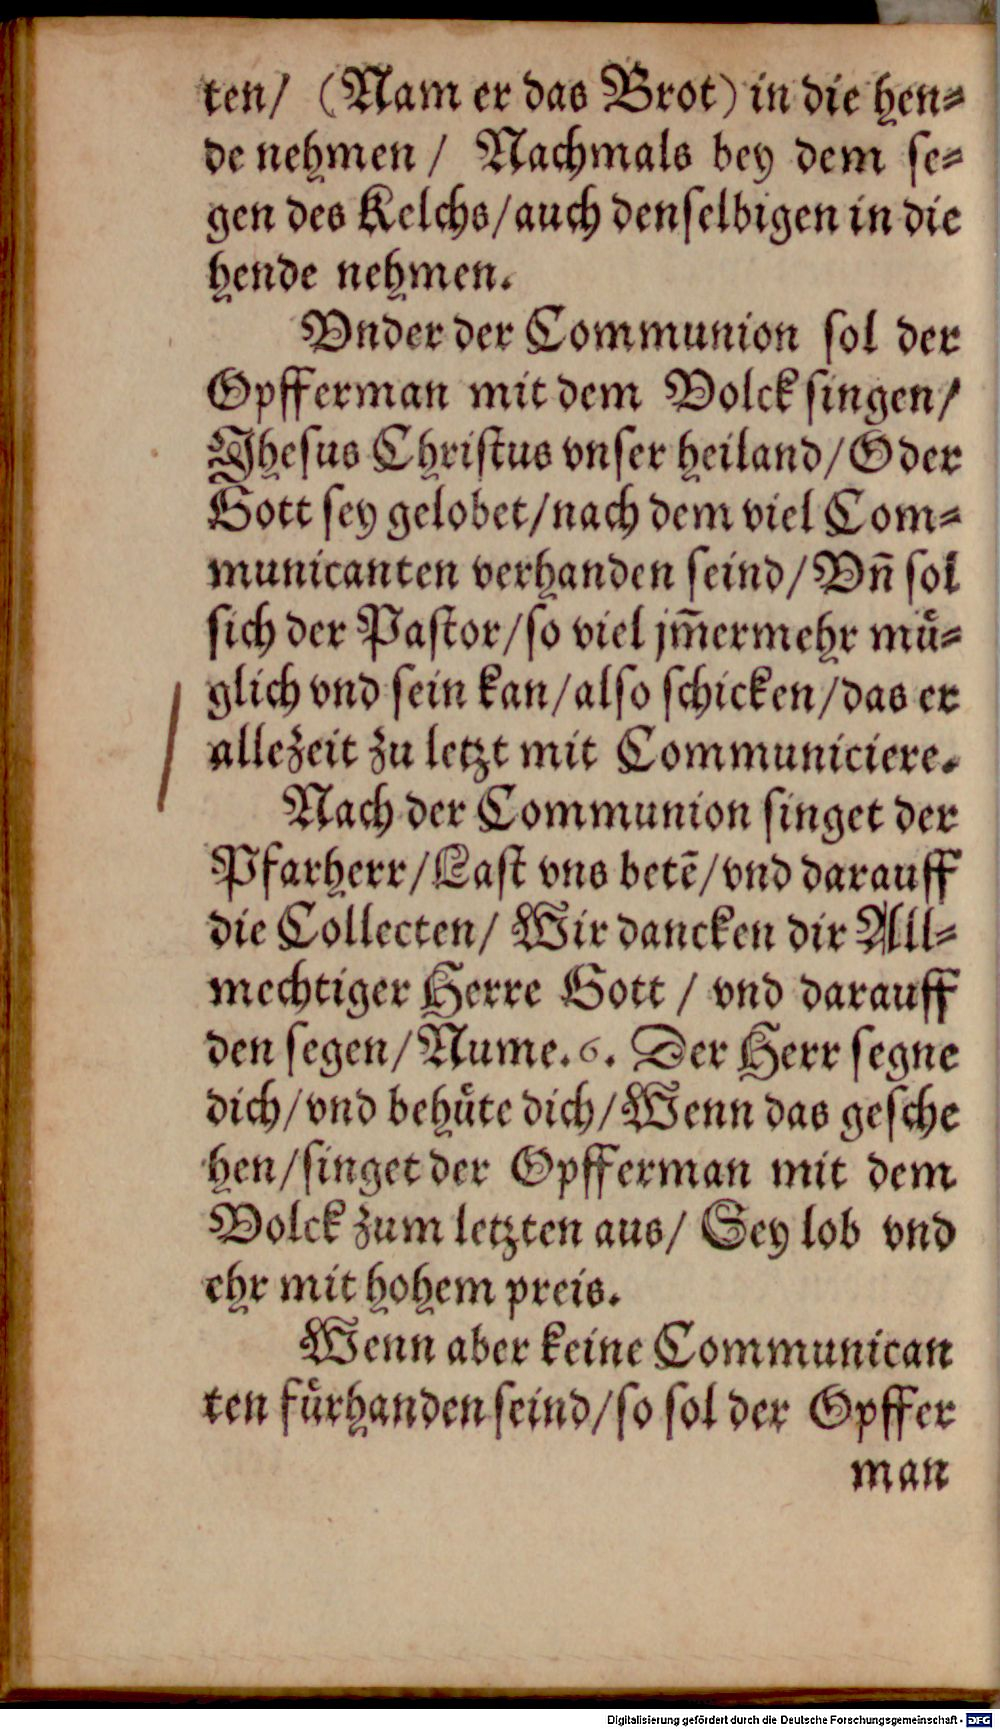 ten/ (Nam er das Brot) in die hen-
de nehmen / Nachmals bey dem se-
gen des Kelchs/auch denselbigen in die
hende nehmen.
Vnder der Communion sol der
Opfferman mit dem Volck singen/
Jhesus Christus vnser heiland/Oder
Gott sey gelobet/nach dem viel Com-
municanten verhanden seind/Vñ sol
sich der Pastor/so viel jm̃ermehr muͤ-
glich vnd sein kan/also schicken/das er
allezeit zu letzt mit Communiciere.
Nach der Communion singet der
Pfarherr/Last vns betẽ/vnd darauff
die Collecten/ Wir dancken dir All-
mechtiger Herre Gott / vnd darauff
den segen/Nume.6. Der Herr segne
dich/vnd behuͤte dich/Wenn das gesche
hen/singet der Opfferman mit dem
Volck zum letzten aus/ Sey lob vnd
ehr mit hohem preis.
Wenn aber keine Communican
ten fuͤrhanden seind/so sol der Opffer
man
Digitalisierung gefördert durch die Deutsche Forschungsgemeinschaft - DFG